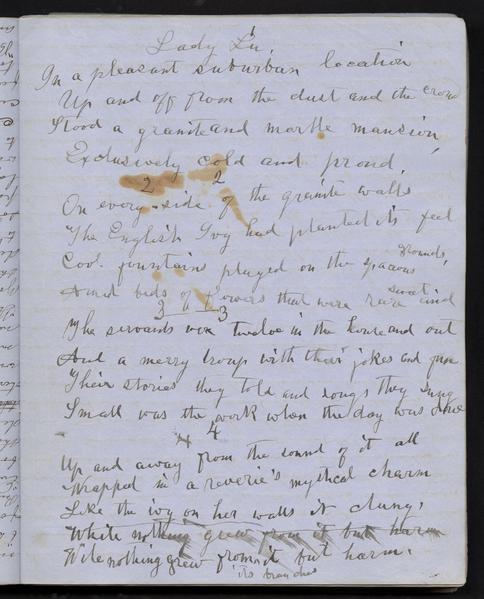 Lady Lu,
1
In a pleasant suburban location
Up and off from the dust and the crowd
Stood a granite and marble mansion,
Exclusively cold and proud,
2 2
On every side of the granite walls
The English Ivy had planted its feet
Cool fountains played on the spacious grounds,
Amid beds of flowers that were rare and sweet
3 3
The servants were twelve in the house and out
And a merry troup with their jokes and
Their stories they told and songs they sung
Small was the work when the day was done
4
Up and away from the sound of it all
Wrapped in a reverie's mystical charm
Like the ivy on her walls it clung,
While nothing grew from it but harm
While nothing grew from it but harm.
its branches